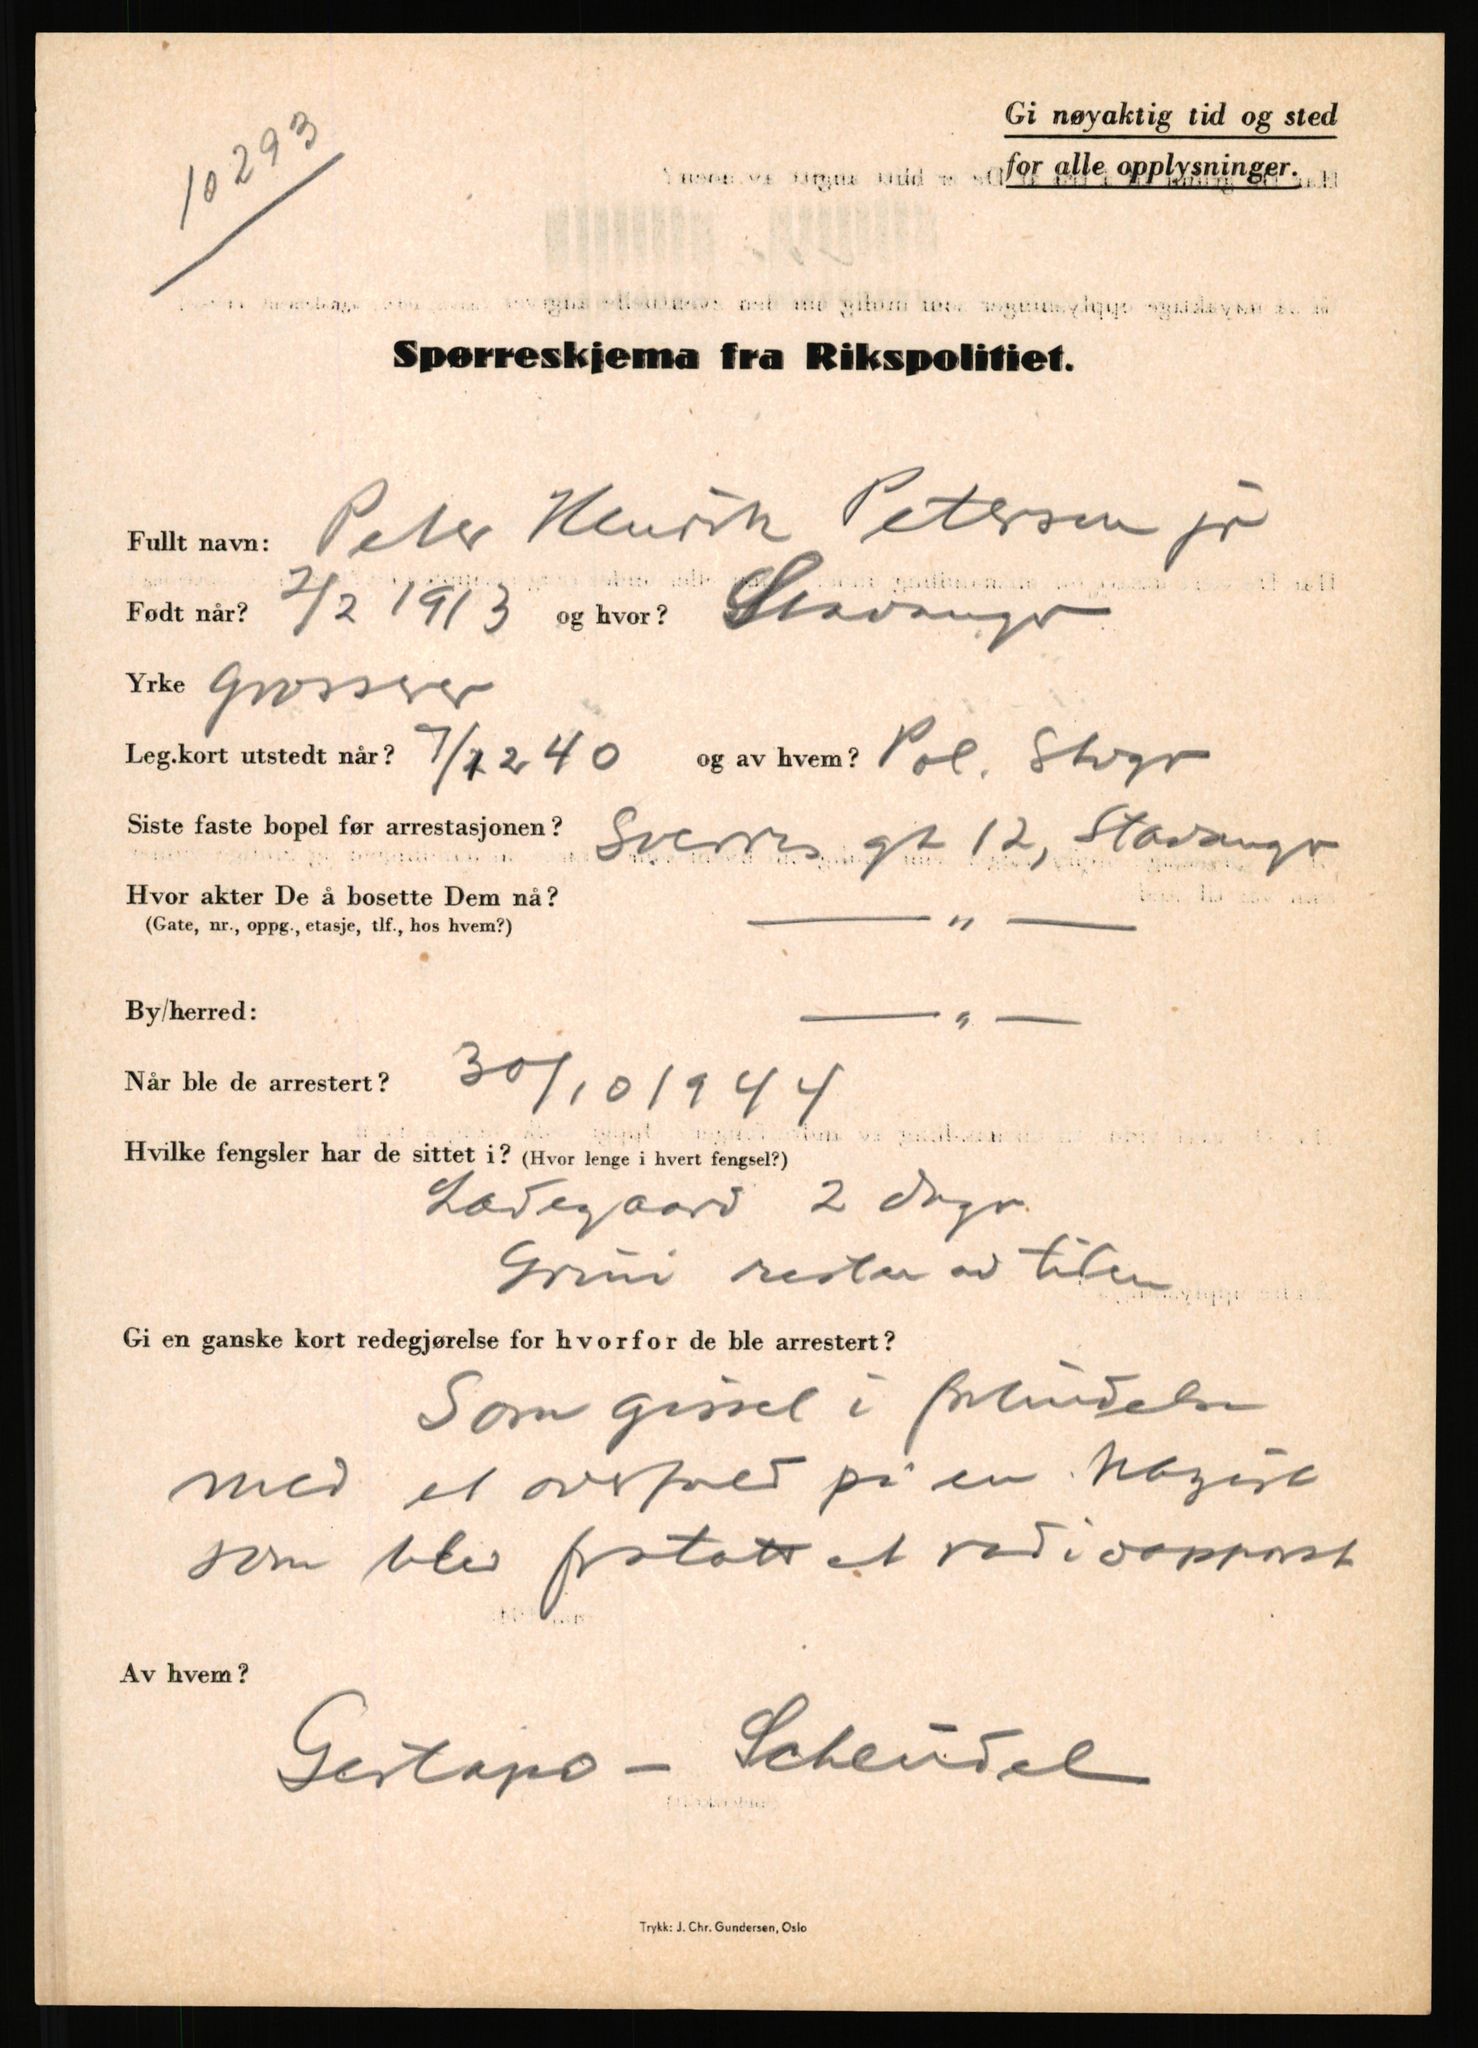 10293
Gi nøyaktig tid og sted
for alle opplysninger.
Spørreskjema fra Rikspolitiet.
Fullt navn: Peter Henrik Petersen jr
Født når? 2/2 1913 og hvor? Stavanger
Yrke Grosserer
Leg.kort utstedt når? 7/12 40 og av hvem? Pol. Stvgr
Siste faste bopel før arrestasjonen? Sverres gt 12, Stavanger
Hvor akter De å bosette Dem nå? — " —
(Gate, nr., oppg., etasje, tlf., hos hvem?)
By/herred: — " —
Når ble de arrestert? 30/10 1944
Hvilke fengsler har de sittet i? (Hvor lenge i hvert fengsel?)
Ladegaard 2 dager
Grini resten av tiden
Gi en ganske kort redegjørelse for hvorfor de ble arrestert?
Som gissel i forbindelse
med et overfald på en Nazist
som blev frstatt et radioapparat
Av hvem?
Gestapo —
Trykk: J. Chr. Gundersen, Oslo